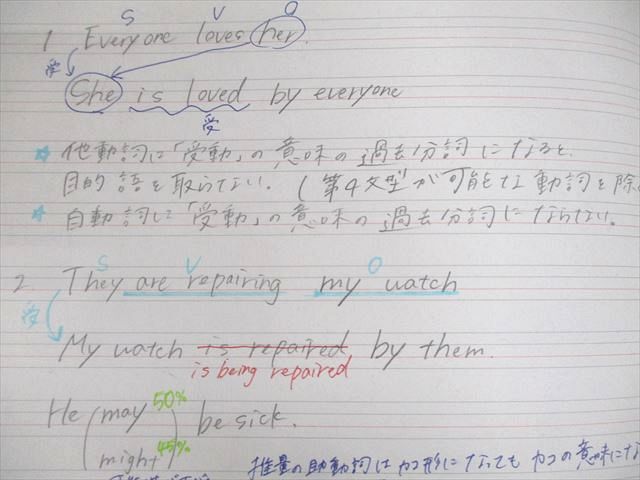 S V O
1 Everyone loves her.
受
She is loved by everyone
受
☆ 他動詞は「受動」の意味の過去分詞になると、
目的語を取らない。(第4文型が可能な動詞を除
☆ 自動詞は「受動」の意味の過去分詞にならない。
S V O
2 They are repairing my watch
受
My watch is repaired by them.
is being repaired
He may 50% be sick.
might 45%
推量の助動詞はカコ形になってもカコの意味にな